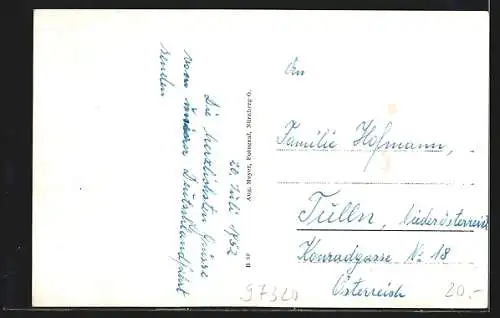 20. Juli 1952
Die herzlichsten Grüsse
von unserer Deutschlandfahrt
senden
Aug. Meyer, Fotograf, Nürnberg-O.
B 89
An
Familie Hofmann,
Tulln, Niederösterreich
Konradgasse No 18
Österreich
97320
20.-